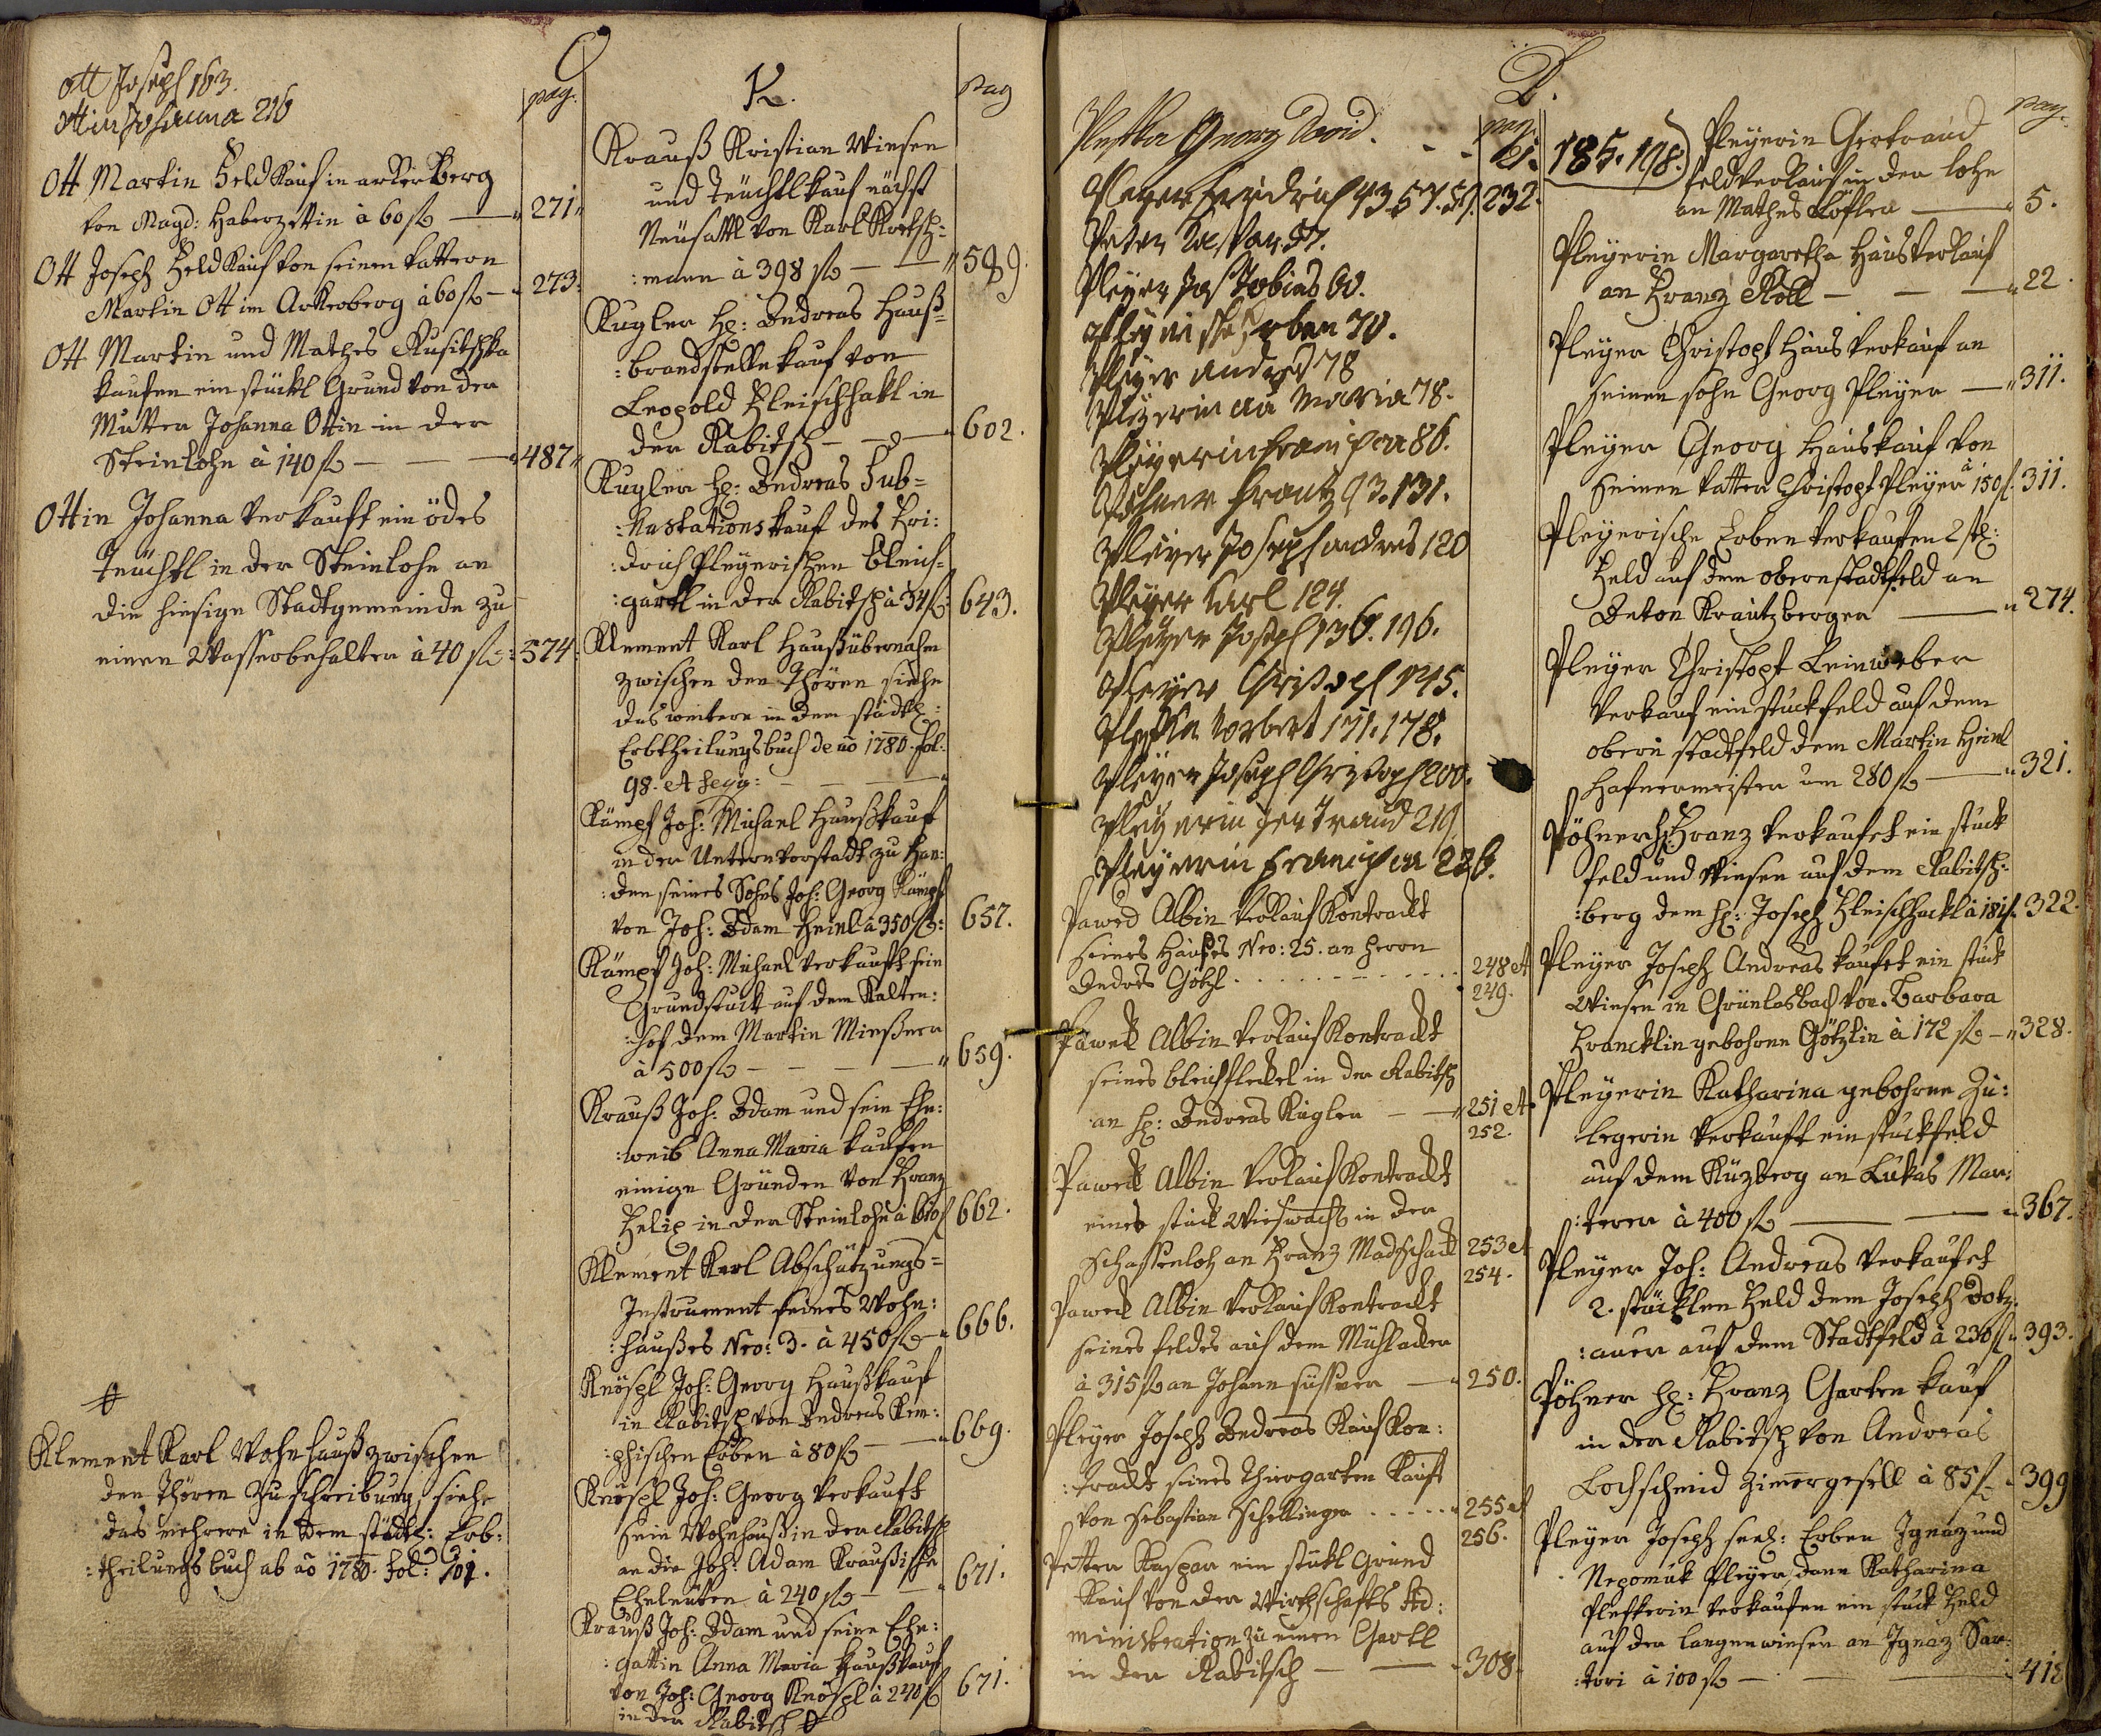 O
Ott Joseph 163.
Ottin Johanna 216
pag.
Ott Martin Feld Kauf in arker Berg
von Magd: Haberzettin à 60 f — 271
Ott Joseph Feld Kauf von seinem Vattern
Martin Ott im Arkerberg à 60 f — 273.
Ott Martin und Mathes Rusitschka
kaufen ein stückl Grund von der
Mutter Johanna Ottin in der
Steinlohe à 140 f — 487
Ottin Johanna verkauft ein ödes
Teüchtl in der Steinlohe an
die hiesige Stadtgemeinde zu
einen Wasserbehalter à 40 f: 574.
Klement Karl Wohnhauß zwischen
den Thören Zuschreibung, siehe
das mehrere in dem städtl: Erb:
:theilungsbuch ab aõ 1780. Fol: 101.
K.
pag
Krauß Kristian Wiesen
und Teüchtlkauf nächst
Neüsattl von Karl
:mann à 398 f — 589.
Kugler H: Andreas Hauß=
:brandstelle kauf von
Leopold Fleischhakl in
der Rabitsch — 602.
Kugler H: Andreas Sub=
:hastations kauf des Fri:
:drich Pleyerischen Bleich=
:gartl in der Rabitsch à 34 f: 643.
Klement Karl Haußübernahm
zwischen den Thören siehe
das weitere in dem städtl:
Erbtheilungsbuch de aõ 1780. fol:
98. et seqq: —
Kämpf Joh: Michael Haußkauf
in der Untern vorstadt zu Han:
:den seines Sohns Joh: Georg Kämpf
von Joh: Adam Heinl à 350 f: 657.
Kämpf Joh: Michael verkauft sein
Grundstuck auf dem Kalten:
:hof dem Martin Mießner
à 500 f — 659.
Krauß Joh: Adam und sein Ehe:
:weib Anna Maria kaufen
einige Gründen von Franz
Felix in der Steinlohe à 600 f 662.
Klement Karl Abschätzungs=
Instrument seines Wohn:
:haußes Nro: 3. à 450 f — 666.
Knöspl Joh: Georg Haußkauf
in Rabitsch von Andreas Kem:
:phischen Erben à 80 f — 669.
Knöspl Joh: Georg verkauft
sein Wohnhauß in der Rabitsch
an die Joh: Adam Kraußische
Eheleüten à 240 f — 671.
Krauß Joh: Adam und seine Ehe:
:gattin Anna Maria Haußkauf
von Joh: Georg Knöspl à 240 f 671.
in der Rabitsch
P.
pag
Georg David. - - 21.
Pleyer Fridrich 43. 57. 59. 232.
Peter Caspar 57.
Pleyer Jos Tobias 60.
Pleyerische Erben 70.
Pleyer Andres 78
Pleyerin aã Maria 78.
Pleyerin Francisca 86.
Pöhner Frantz 93. 131.
Pleyer Joseph andres 120
Pleyer Karl 124.
Pleyer Joseph 136. 196.
Pleyer Christoph 145.
Norbert 171. 178.
Pleyer Joseph Christoph 200.
Pleyerin Gertraud 219.
Pleyerin Francisca 226.
Paweck Albin Verkauf Kontrackt
seines Haußes Nro: 25. an Herrn
Andres Götzl . . . . 248 et
249.
Paweck Albin Verkauf Kontrackt
seines bleichfleckel in der Rabitsch
an H: Andreas Kugler — 251 et
252.
Paweck Albin Verkauf Kontrackt
eines stück Wieswachs in der
Schaffenloh an Franz Madschack 253 et
254.
Paweck Albin Verkauf Kontrackt
seines feldes auf dem Mühlacker
à 315 f an Johann — 250.
Pleyer Joseph Andreas Kauf Kon:
:trackt seines Thiergarten Kauft
von Sebastian Schellinger . . . . 255 et
256.
Petter Kaspar ein stükl Grund
Kauf von der Wirthschafts Ad:
ministration zu einen Gartl
in der Rabitsch — 308.
pag.
185. 198.) Pleyerin Gertraud
feldverkauf in der lohe
an Mathes Löfler — 5.
Pleyerin Margaretha Hausverkauf
an Franz Röll — 22.
Pleyer Christoph Haus verkauf an
seinen sohn Georg Pleyer — 311.
Pleyer Georg Hauskauf von
seinen Vatter Christoph Pleyer à 150 f. 311.
Pleyerische Erben verkaufen 2 stl:
Feld auf dem obern stadtfeld an
Anton Krautzberger — 274.
Pleyer Christoph Leinweber
Verkauf ein stuckfeld auf dem
obern stadtfeld dem Martin Heinl
Hafnermeister um 280 f — 321.
Pöhner H: Franz verkaufet ein stuck
feld und Wiesen auf dem Rabitsch:
:berg dem H: Joseph Fleischhackl à 181 f. 322.
Pleyer Joseph Andreas kaufet ein stuck
Wiesen in Grünlasbach von Barbara
Francklin gebohrne Götzlin à 172 f — 328.
Pleyerin Katharina gebohrne Zu:
legerin verkauft ein stuckfeld
auf dem Küzberg an Lukas Mar:
:terer à 400 f — 367.
Pleyer Joh: Andreas verkaufet
2. stücklen Feld dem Joseph Dotz:
:auer auf dem Stadtfeld à 230 f. 393.
Pöhner H: Franz Garten kauf
in der Rabitsch von Andreas
Lochschmid Zimergesell à 85 f — 399
Pleyer Joseph seel: Erben Ignaz und
Nepomuk Pleyer, dann Katharina
verkaufen ein stuck Feld
auf der langenwiesen an Ignaz Sar:
:tori à 100 f — 418